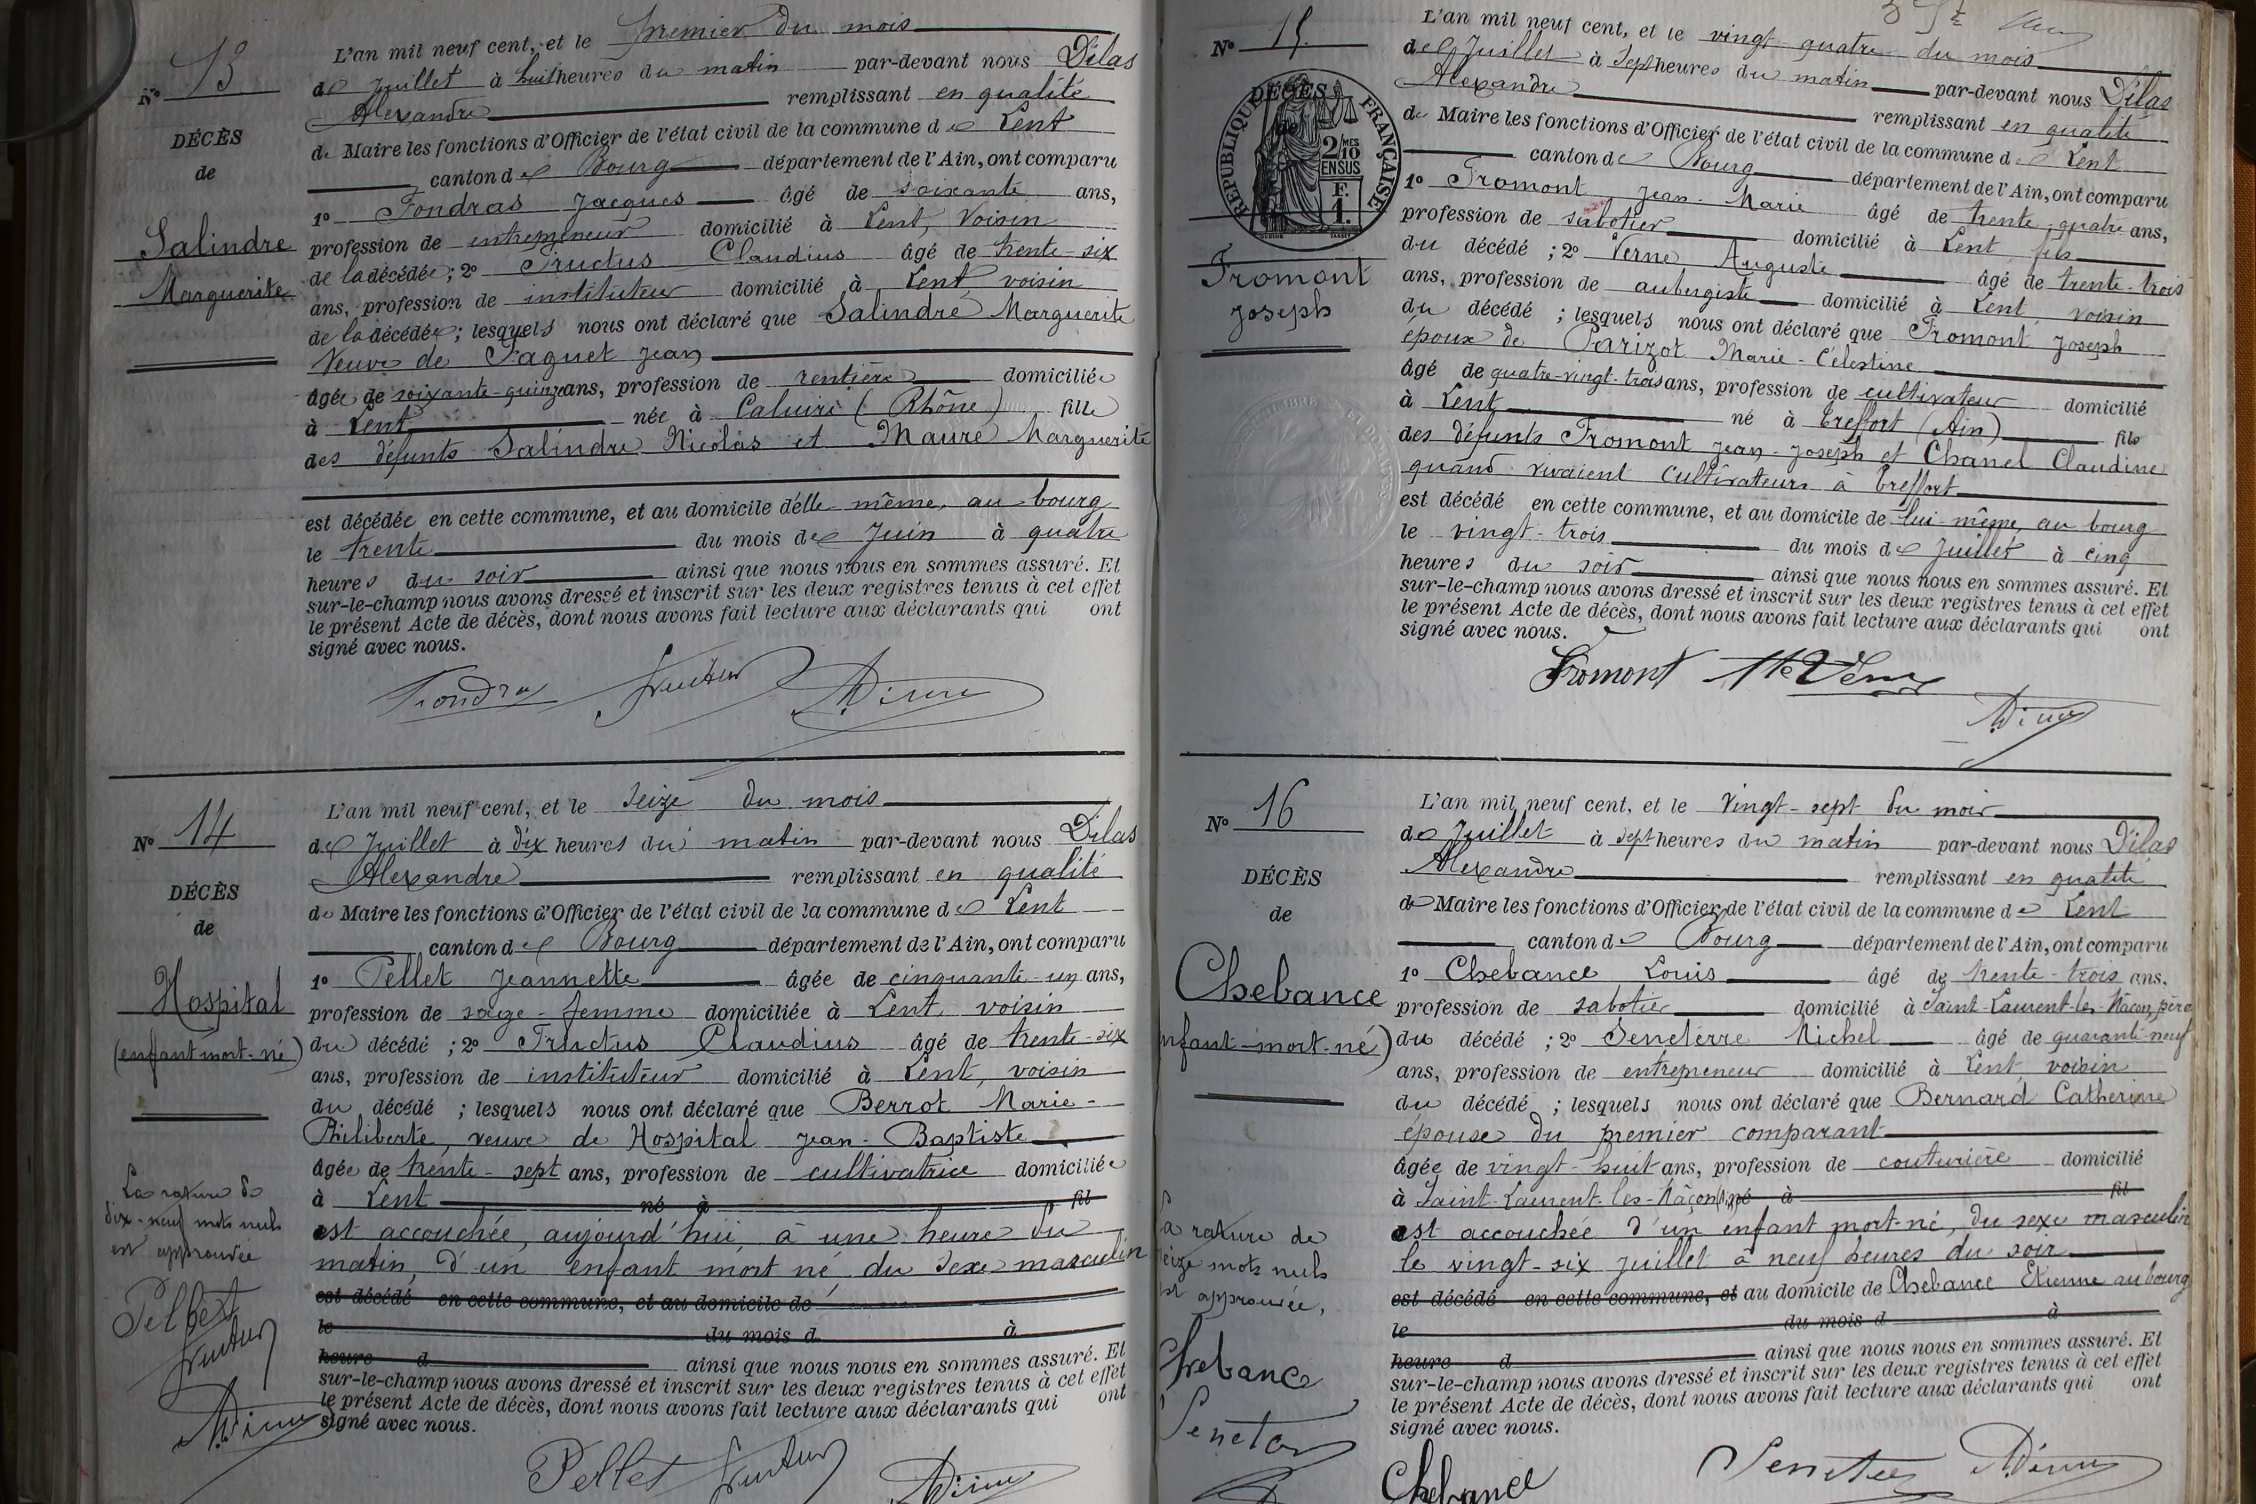 N° 13
DÉCÈS
de
Salindre
Marguerite
L'an mil neuf cent, et le premier du mois
de Juillet à huit heures du matin par-devant nous Dilas
Alexandre remplissant en qualité
de Maire les fonctions d'Officier de l'état civil de la commune de Lent
canton de Bourg département de l'Ain, ont comparu
1° Fondras Jacques âgé de soixante ans,
profession de entrepreneur domicilié à Lent, voisin
de la décédée; 2° Fructus Claudius âgé de trente-six
ans, profession de instituteur domicilié à Lent, voisin
de la décédée; lesquels nous ont déclaré que Salindre Marguerite
Veuve de Faguet Jean
âgée de soixante-quinze ans, profession de rentière domiciliée
à Lent née à Caluire (Rhône) fille
des défunts Salindre Nicolas et Maure Marguerite
est décédée en cette commune, et au domicile d'elle même, au bourg
le trente du mois de Juin à quatre
heures du soir ainsi que nous nous en sommes assuré. Et
sur-le-champ nous avons dressé et inscrit sur les deux registres tenus à cet effet
le présent Acte de décès, dont nous avons fait lecture aux déclarants qui ont
signé avec nous.
Fondras Fructus
N° 14
DÉCÈS
de
Hospital
(enfant mort-né)
La rature de
dix-neuf mots nuls
est approuvée
Pellet
Fructus
L'an mil neuf cent, et le seize du mois
de Juillet à dix heures du matin par-devant nous Dilas
Alexandre remplissant en qualité
de Maire les fonctions d'Officier de l'état civil de la commune de Lent
canton de Bourg département de l'Ain, ont comparu
1° Pellet Jeannette âgée de cinquante-un ans,
profession de sage-femme domiciliée à Lent, voisin
du décédé; 2° Fructus Claudius âgé de trente-six
ans, profession de instituteur domicilié à Lent, voisin
du décédé; lesquels nous ont déclaré que Berrot Marie-
Philiberte, veuve de Hospital Jean-Baptiste
âgée de trente-sept ans, profession de cultivatrice domiciliée
à Lent né à fil
est accouchée, aujourd'hui, à une heure du
matin, d'un enfant mort né, du sexe masculin
est décédé en cette commune, et au domicile de
le du mois d à
heure d ainsi que nous nous en sommes assuré. Et
sur-le-champ nous avons dressé et inscrit sur les deux registres tenus à cet effet
le présent Acte de décès, dont nous avons fait lecture aux déclarants qui ont
signé avec nous.
Pellet Fructus
N° 15.
DÉCÈS
de
RÉPUBLIQUE FRANÇAISE
2/10 MES
EN SUS
F.
1.
Fromont
Joseph
L'an mil neuf cent, et le vingt quatre du mois
de Juillet à sept heures du matin par-devant nous Dilas
Alexandre remplissant en qualité
de Maire les fonctions d'Officier de l'état civil de la commune de Lent
canton de Bourg département de l'Ain, ont comparu
1° Fromont Jean-Marie âgé de trente-quatre ans,
profession de sabotier domicilié à Lent, fils
du décédé; 2° Verne Auguste âgé de trente-trois
ans, profession de aubergiste domicilié à Lent, voisin
du décédé; lesquels nous ont déclaré que Fromont Joseph
époux de Parizot Marie-Célestine
âgé de quatre-vingt-trois ans, profession de cultivateur domicilié
à Lent né à Treffort (Ain) fils
des défunts Fromont Jean-Joseph et Chanel Claudine
quand vivaient cultivateurs à Treffort
est décédé en cette commune, et au domicile de lui-même, au bourg
le vingt-trois du mois de Juillet à cinq
heures du soir ainsi que nous nous en sommes assuré. Et
sur-le-champ nous avons dressé et inscrit sur les deux registres tenus à cet effet
le présent Acte de décès, dont nous avons fait lecture aux déclarants qui ont
signé avec nous.
Fromont
N° 16
DÉCÈS
de
Chebance
enfant-mort-né)
La rature de
seize mots nuls
est approuvée,
Chebance
L'an mil neuf cent, et le vingt-sept du mois
de Juillet à sept heures du matin par-devant nous Dilas
Alexandre remplissant en qualité
de Maire les fonctions d'Officier de l'état civil de la commune de Lent
canton de Bourg département de l'Ain, ont comparu
1° Chebance Louis âgé de trente-trois ans.
profession de sabotier domicilié à Saint-Laurent-les-Mâcon, père
du décédé; 2° Seneterre Michel âgé de quarante-neuf
ans, profession de entrepreneur domicilié à Lent, voisin
du décédé; lesquels nous ont déclaré que Bernard Catherine
épouse du premier comparant
âgée de vingt-huit ans, profession de couturière domicilié
à Saint-Laurent-les-Mâcon né à fil
est accouchée d'un enfant mort-né, du sexe masculin
le vingt-six Juillet à neuf heures du soir
est décédé en cette commune, et au domicile de Chebance Etienne au bourg
le du mois d à
heure d ainsi que nous nous en sommes assuré. Et
sur-le-champ nous avons dressé et inscrit sur les deux registres tenus à cet effet
le présent Acte de décès, dont nous avons fait lecture aux déclarants qui ont
signé avec nous.
Chebance